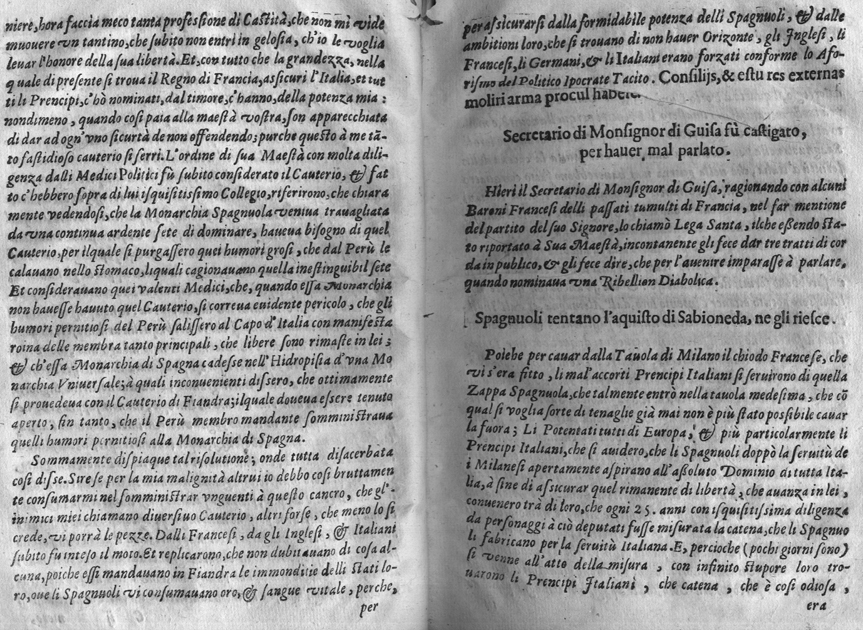 niere, hora faccia meco tanta professione di Castità, che non mi vide
muouere vn tantino, che subito non entri in gelosia, ch'io le voglia
leuar l'honore della sua libertà. Et, con tutto che la grandezza, nella
quale di presente si troua il Regno di Francia, assicuri l'Italia, et tut
ti li Prencipi, c'hò nominati, dal timore, c'hanno, della potenza mia :
nondimeno, quando cosi paia alla maestà vostra, son apparecchiata
di dar ad ogn'vno sicurtà de non offendendo; purche questo à me tã-
to fastidioso cauterio si serri. L'ordine di sua Maestà con molta dili-
genza dalli Medici Politici fù subito considerato il Cauterio, & fat
to c'hebbero sopra di lui isquisitissimo Collegio, riferirono, che chiara
mente vedendosi, che la Monarchia Spagnuola veniua trauagliata
da vna continua ardente sete di dominare, haueua bisogno di quel
Cauterio, per il quale si purgassero quei humori grosi, che dal Perù le
calauano nello stomaco, liquali cagionauano quella inestinguibil sete
Et considerauano quei valenti Medici, che, quando essa Monarchia
non hauesse hauuto quel Cauterio, si correua euidente pericolo, che gli
humori pernitiosi del Perù salissero al Capo d'Italia con manifesta
roina delle membra tanto principali, che libere sono rimaste in lei ;
& ch'essa Monarchia di Spagna cadesse nell'Hidropisia d'vna Mo
narchia Vniuersale; à quali inconuenienti dissero, che ottimamente
si prouedeua con il Cauterio di Fiandra; ilquale doueua essere tenuto
aperto, fin tanto, che il Perù membro mandante somministraua
quelli humori pernitiosi alla Monarchia di Spagna.
Sommamente dispiaque tal risolutione; onde tutta disacerbata
così disse. Sire se per la mia malignità altrui io debbo cosi bruttamen
te consumarmi nel somministrar vnguenti à questo cancro, che gl'-
inimici miei chiamano diuersiuo Cauterio, altri forse, che meno lo si
crede, vi porrà le pezze. Dalli Francesi, da gli Inglesi, & Italiani
subito fu inteso il moto. Et replicarono, che non dubitauano di cosa al-
cuna, poiche essi mandauano in Fiandra le immonditie delli stati lo-
ro, oue li Spagnuoli vi consumauano oro, & sangue vitale, perche,
per
per assicurarsi dalla formidabile potenza delli Spagnuoli, & dalle
ambitioni loro, che si trouano di non hauer Orizonte, gli Inglesi, li
Francesi, li Germani, & li Italiani erano forzati conforme lo Afo-
rismo del Politico Ipocrate Tacito. Consilijs, & estu res externas
moliri arma procul habere.
Secretario di Monsignor di Guisa fù castigato,
per hauer mal parlato.
Hieri il Secretario di Monsignor di Guisa, ragionando con alcuni
Baroni Francesi delli passati tumulti di Francia, nel far mentione
del partito del suo Signore, lo chiamò Lega Santa, ilche essendo sta-
to riportato à Sua Maestà, incontanente gli fece dar tre tratti di cor
da in publico, & gli fece dire, che per l'auenire imparasse à parlare,
quando nominaua vna Ribellion Diabolica.
Spagnuoli tentano l'aquisto di Sabioneda, ne gli riesce.
Poiche per cauar dalla Tauola di Milano il chiodo Francese, che
vi s'era fitto, li mal'accorti Prencipi Italiani si seruirono di quella
Zappa Spagnuola, che talmente entrò nella tauola medesima, che cõ
qual si voglia sorte di tenaglie già mai non è più stato possibile cauar
la fuora ; Li Potentati tutti di Europa, & più particolarmente li
Prencipi Italiani, che si auidero, che li Spagnuoli doppò la seruitù de
i Milanesi apertamente aspirano all'assoluto Dominio di tutta Ita-
lia, à fine di assicurar quel rimanente di libertà, che auanza in lei,
conuenero trà di loro, che ogni 25. anni con isquisitissima diligenza
da personaggi à ciò deputati fusse misurata la catena, che li Spagnuo
li fabricano per la seruitù Italiana. E, percioche (pochi giorni sono)
si venne all'atto della misura, con infinito stupore loro tro-
uarono li Prencipi Italiani, che catena, che è così odiosa,
era